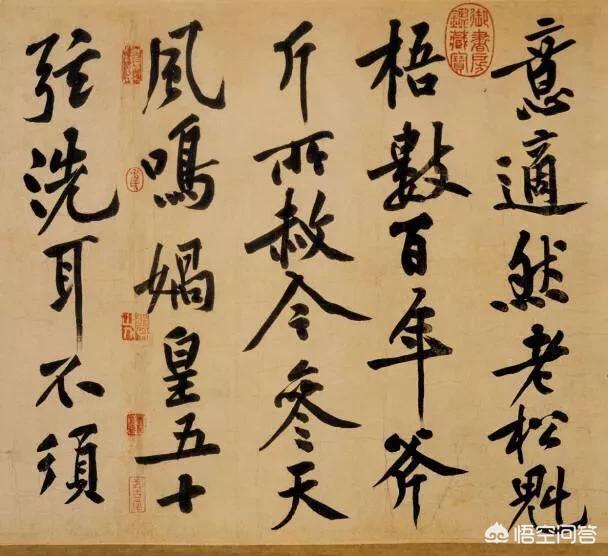 意適然老松魁
梧數百年斧
斤所赦今參天
風鳴媧皇五十
弦洗耳不須
御書房鑑藏寶
悟空问答